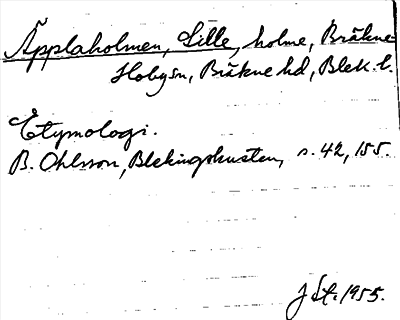 Äpplaholmen, Lille, holme, Bräkne-
Hobysn, Bräkne hd, Blek. l.
Etymologi.
B. Ohlsson, Blekingskusten, s. 42, 155.
J St. 1955.